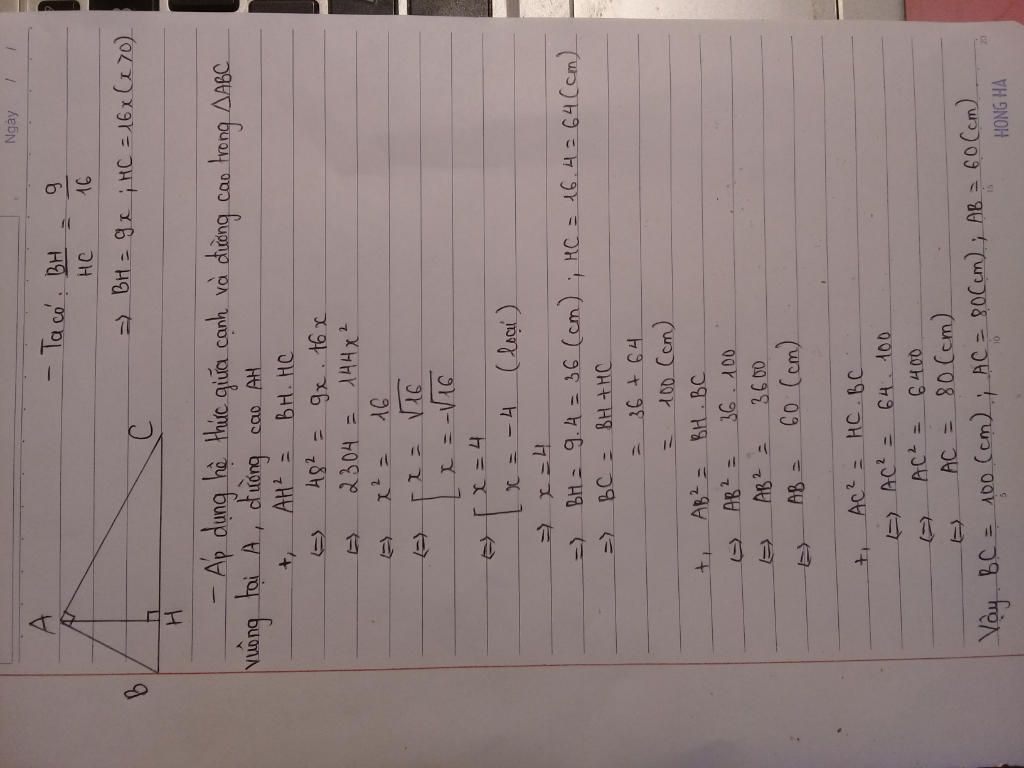 Ngày / /
A
B
H
C
- Ta có: BH/HC = 9/16
=> BH = 9x ; HC = 16x (x>0)
- Áp dụng hệ thức giữa cạnh và đường cao trong △ABC
vuông tại A, đường cao AH
+, AH² = BH.HC
(=) 48² = 9x.16x
(=) 2304 = 144x²
(=) x² = 16
(=) [ x = √16
x = -√16
(=) [ x = 4
x = -4 (loại)
=> x = 4
=> BH = 9.4 = 36 (cm) ; HC = 16.4 = 64 (cm)
=> BC = BH + HC
= 36 + 64
= 100 (cm)
+, AB² = BH.BC
(=) AB² = 36.100
(=) AB² = 3600
(=) AB = 60 (cm)
+, AC² = HC.BC
(=) AC² = 64.100
(=) AC² = 6400
(=) AC = 80 (cm)
Vậy BC = 100 (cm) ; AC = 80 (cm) ; AB = 60 (cm)
5 10 15 20
HONG HA